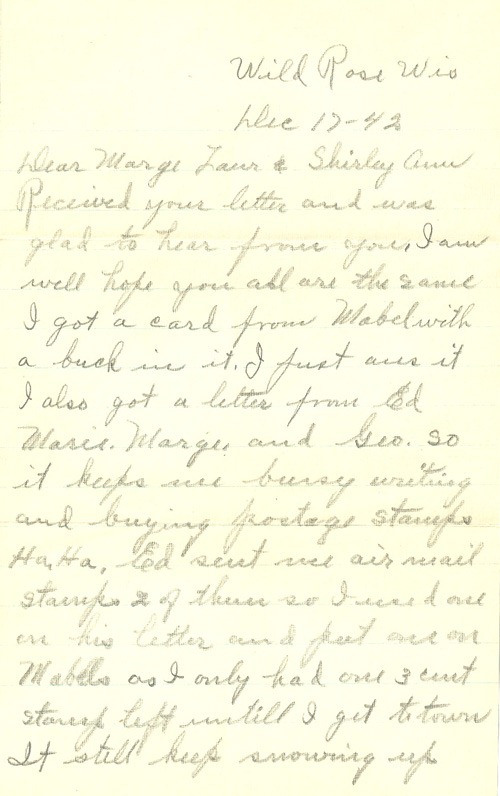 Wild Rose Wis
Dec 17-42
Dear Marge Laur & Shirley Ann
Received your letter and was
glad to hear from you, I am
well hope you all are the same
I got a card from Mabel with
a buck in it. I just ans it
I also got a letter from Ed
Marie. Marge. and Geo. so
it keeps me bussy writing
and buying postage stamps
Ha, Ha, Ed sent me air mail
stamps 2 of them so I used one
on his letter and put one on
Mabels as I only had one 3 cent
stamp left untill I get to town
It still keep snowing up